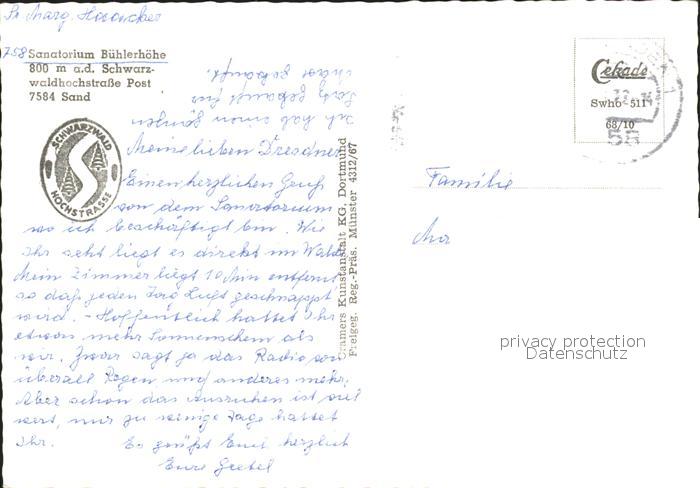 Fr. Marg.
758 Sanatorium Bühlerhöhe
800 m a.d. Schwarz-
waldhochstraße Post
7584 Sand
SCHWARZWALD
HOCHSTRASSE
Ich hab einen ganzen
Sack gekauft für
Cramers Kunstanstalt KG, Dortmund
Freigeg. Reg.-Präs. Münster 4312/67
Cekade
Swho 511
68/10
Meine lieben Dresdner
Einen herzlichen Gruß
von dem Sanatorium
wo ich beschäftigt bin. Wie
Ihr seht liegt es direkt im Wald.
Mein Zimmer liegt 10 Min entfernt
so daß jeden Tag Luft geschnappt
wird. - Hoffentlich hattet Ihr
etwas mehr Sonnenschein als
wir. Zwar sagt ja das Radio von
überall Regen und anderes mehr.
Aber schon das Ausruhen ist viel
wert, nur zu wenige Tage hattet
Ihr. Es grüßt Euch herzlich
Eure Gretel
Familie
privacy protection
Datenschutz